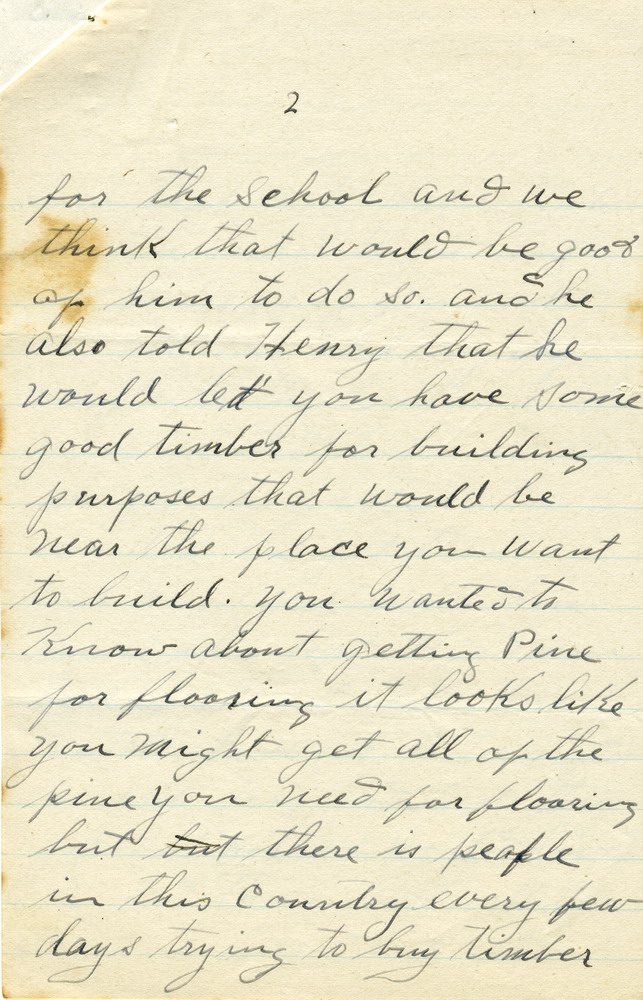 2
for the school and we
think that would be good
of him to do so. and he
also told Henry that he
would let you have some
good timber for building
purposes that would be
near the place you want
to build. you wanted to
Know about getting Pine
for flooring it looks like
you might get all of the
pine you need for flooring
but but there is people
in this Country every few
days trying to buy timber